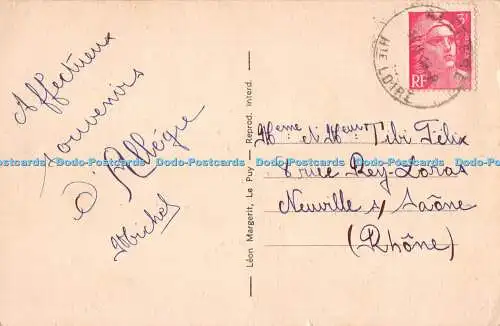 Affectueux
Souvenirs
d'Allègre
Michel
Léon Margerit, Le Puy — Reprod. interd.
3F
RF
HTE LOIRE
Mme et Mr Tibi Félix
8 rue Rey-Loras
Neuville s/ Saône
(Rhône)
Dodo-Postcards Dodo-Postcards Dodo-Postcards Dodo-Postcards Dodo-Postcards Dodo-Postcards